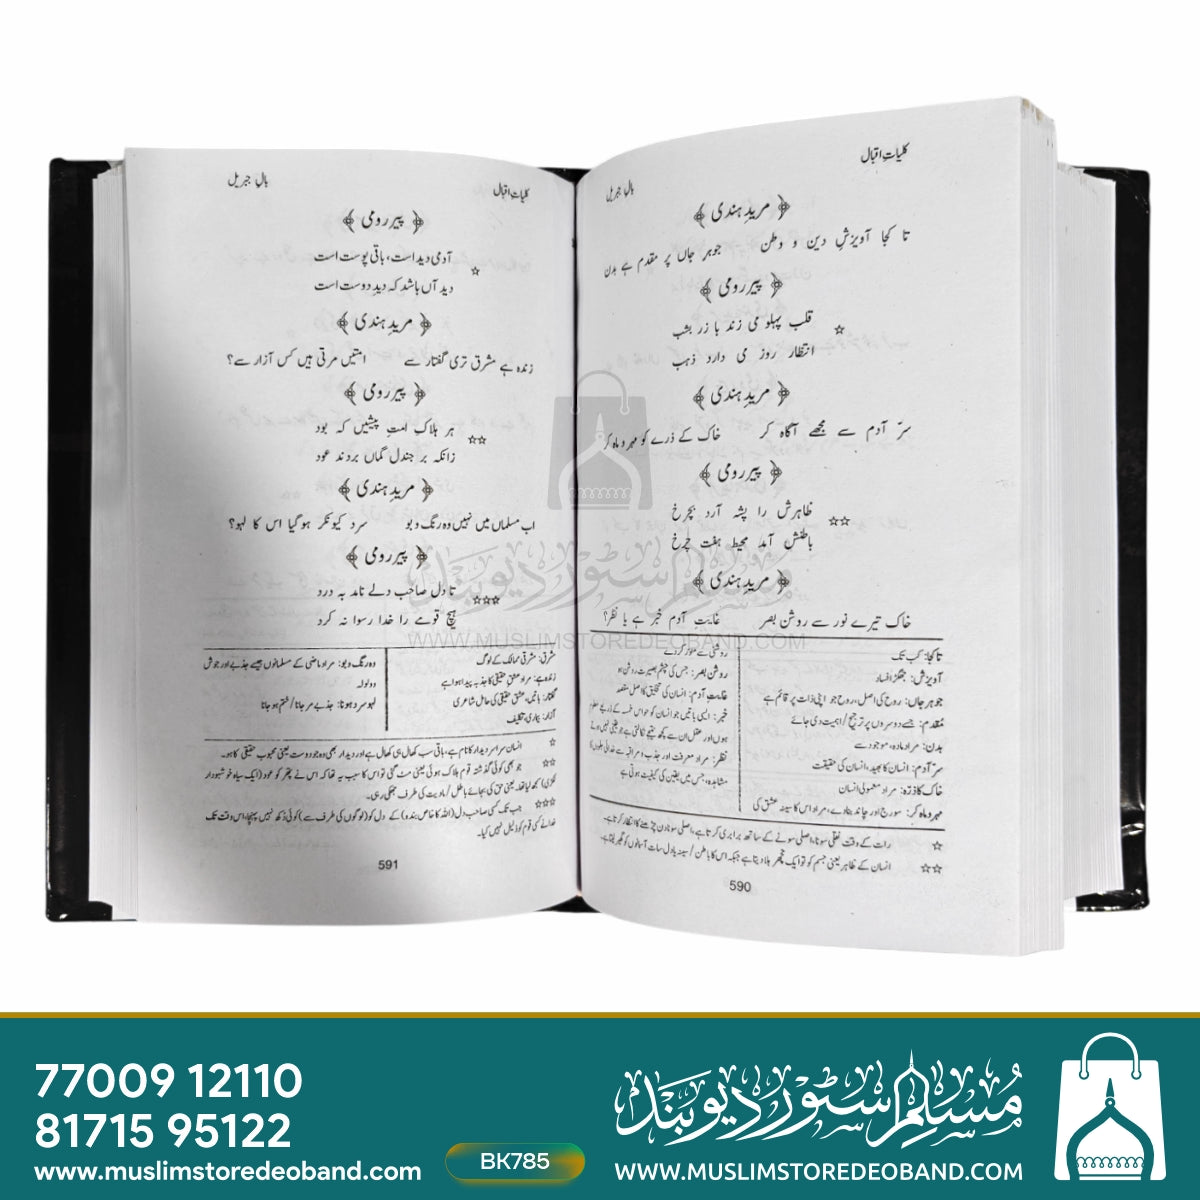 کلیاتِ اقبال
بالِ جبریل
﴿ مریدِ ہندی ﴾
تا کجا آویزشِ دین و وطن جوہرِ جاں پر مقدم ہے بدن
﴿ پیرِ رومی ﴾
☆ قلب پہلو می زند با زر بشب
انتظارِ روز می دارد ذہب
﴿ مریدِ ہندی ﴾
سرِّ آدم سے مجھے آگاہ کر خاک کے ذرے کو مہر و ماہ کر
﴿ پیرِ رومی ﴾
☆☆ ظاہرش را پشہ آرد بچرخ
باطنش آمد محیطِ ہفت چرخ
﴿ مریدِ ہندی ﴾
خاک تیرے نور سے روشن بصر غایتِ آدم خبر ہے یا نظر؟
تا کجا: کب تک
آویزش: جھگڑا فساد
جوہرِ جاں: روح کی اصل، روح جو اپنی ذات پر قائم ہے
مُقدم: جسے دوسروں پر ترجیح / اہمیت دی جائے
بدن: مراد مادہ، موجود سے
سرِّ آدم: انسان کا بھید، انسان کی حقیقت
خاک کا ذرّہ: مراد معمولی انسان
مہر و ماہ کر: سورج اور چاند بنا دے، مراد اس کا سینہ عشق کی
روشنی سے منور کر دے
روشن بصر: جس کی چشمِ بصیرت روشن ہو
غایتِ آدم: انسان کی تخلیق کا اصل مقصد
خبر: ایسی باتیں جو انسان کو حواسِ خمسہ کے ذریعے معلوم
ہوں اور عقل ان سے کچھ نتیجے نکالتی ہے جو یقینی نہیں ہوتے
نظر: مراد معرفت اور جذب و مراقبہ سے خدائی جلووں کا
مشاہدہ، جس میں یقین کی کیفیت ہوتی ہے
☆ رات کے وقت نقلی سونا، اصلی سونے کے ساتھ برابری کرتا ہے، اصلی سونا دن چڑھنے کا انتظار کرتا ہے۔
☆☆ انسان کے ظاہر یعنی جسم کو تو ایک مچھر ہلا دیتا ہے جبکہ اس کا باطن / سینہ یا دل سات آسمانوں کو گھیر لیتا ہے۔
590
کلیاتِ اقبال
بالِ جبریل
﴿ پیرِ رومی ﴾
☆ آدمی دید است، باقی پوست است
دید آں باشد کہ دیدِ دوست است
﴿ مریدِ ہندی ﴾
زندہ ہے مشرق تری گفتار سے امتیں مرتی ہیں کس آزار سے؟
﴿ پیرِ رومی ﴾
☆☆ ہر ہلاکِ امتِ پیشیں کہ بود
زانکہ بر جندل گماں بردند عود
﴿ مریدِ ہندی ﴾
اب مسلماں میں نہیں وہ رنگ و بو سرد کیونکر ہو گیا اس کا لہو؟
﴿ پیرِ رومی ﴾
☆☆☆ تا دلِ صاحب دلے نامد بہ درد
ہیچ قومے را خدا رسوا نہ کرد
مشرق: مشرقی ممالک کے لوگ
زندہ ہے: مراد عشقِ حقیقی کا جذبہ پیدا ہوا ہے
گفتار: باتیں، عشقِ حقیقی کی حامل شاعری
آزار: بیماری، تکلیف
وہ رنگ و بو: مراد ماضی کے مسلمانوں جیسے جذبے اور جوش
و ولولہ
لہو سرد ہونا: جذبے مر جانا / ختم ہو جانا
☆ انسان سراسر دیدار کا نام ہے، باقی سب کھال ہی کھال ہے اور دیدار بھی وہ جو دوست یعنی محبوبِ حقیقی کا ہو۔
☆☆ جو بھی کوئی گذشتہ قوم ہلاک ہوئی یعنی مٹ گئی تو اس کا سبب یہ تھا کہ اس نے پتھر کو عود (ایک سیاہ خوشبودار
لکڑی) سمجھ لیا تھا۔ یعنی حق کی بجائے باطل / مادیت کی طرف جھکی رہی۔
☆☆☆ جب تک کسی صاحبِ دل (اللہ کا خاص بندہ) کے دل کو (لوگوں کی طرف سے) کوئی دُکھ نہیں پہنچا، اس وقت تک
خدا نے کسی قوم کو ذلیل نہیں کیا۔
591
مسلم سٹور دیوبند
WWW.MUSLIMSTOREDEOBAND.COM
77009 12110
81715 95122
www.muslimstoredeoband.com
BK785
مسلم سٹور دیوبند
WWW.MUSLIMSTOREDEOBAND.COM